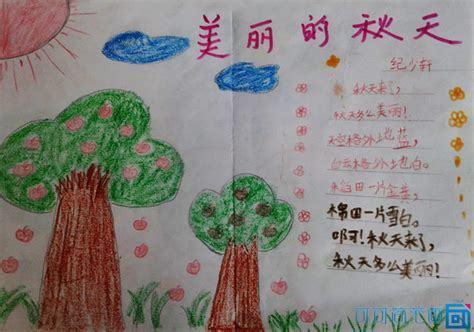 美丽的秋天
纪少轩
秋天来了，
秋天多么美丽！
天空格外地蓝，
白云格外地白。
稻田一片金黄，
棉田一片雪白。
啊！秋天来了，
秋天多么美丽！